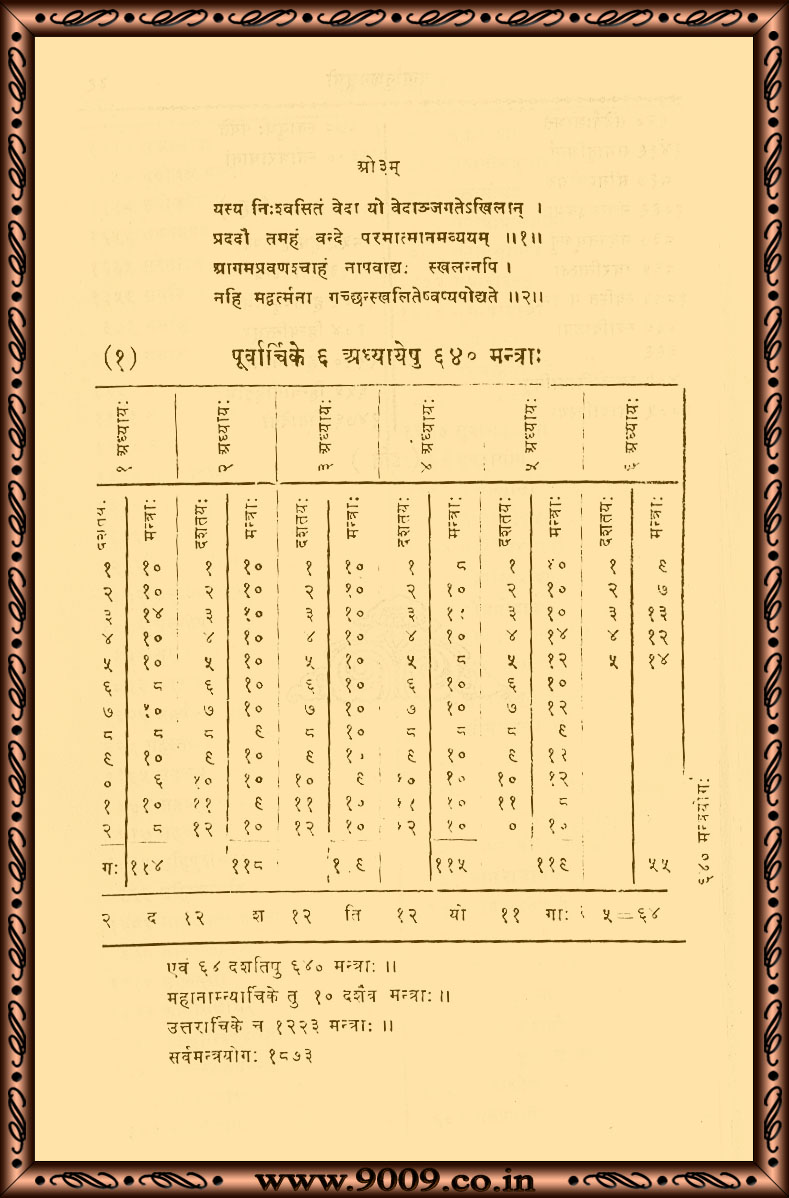 ओ३म्
यस्य निःश्वसितं वेदा यो वेदाञ्जगतेऽखिलान् ।
प्रददौ तमहं वन्दे परमात्मानमव्ययम् ॥१॥
आगमप्रवणश्चाहं नापवाद्यः स्खलन्नपि ।
नहि मद्वर्त्मना गच्छन्स्खलितेष्वप्यपोद्यते ॥२॥
(१) पूर्वार्चिके ६ अध्यायेषु ६४० मन्त्राः
१ अध्यायः २ अध्यायः ३ अध्यायः ४ अध्यायः ५ अध्यायः ६ अध्यायः
दशतयः मन्त्राः दशतयः मन्त्राः दशतयः मन्त्राः दशतयः मन्त्राः दशतयः मन्त्राः दशतयः मन्त्राः
१ १० १ १० १ १० १ ८ १ १० १ ९
२ १० २ १० २ १० २ १० २ १० २ ७
३ १४ ३ १० ३ १० ३ ३ १० ३ १३
४ १० ४ १० ४ १० ४ १० ४ १४ ४ १२
५ १० ५ १० ५ १० ५ ८ ५ १२ ५ १४
६ ८ ६ १० ६ १० ६ १० ६ १०
७ १० ७ १० ७ १० ७ १० ७ १२
८ ८ ८ ९ ८ १० ८ ८ ८ ९
९ १० ९ १० ९ १० ९ १० ९ १२
० ६ १० १० १० ९ १० १० १० १२
१ १० ११ ९ ११ १० ११ १० ११ ८
२ ८ १२ १० १२ १० १२ १० ० १०
गः ११४ ११८ १ ९ ११५ ११९ ५५
६४० मन्त्रयोगः
२ द १२ श १२ ति १२ यो ११ गाः ५ = ६४
एवं ६४ दशतिषु ६४० मन्त्राः ॥
महानाम्न्यार्चिके तु १० दशैव मन्त्राः ॥
उत्तरार्चिके न १२२३ मन्त्राः ॥
सर्वमन्त्रयोगः १८७३
www.9009.co.in